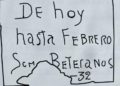 DE hoy
hasta FEBRERO
Som BETERANOS
32